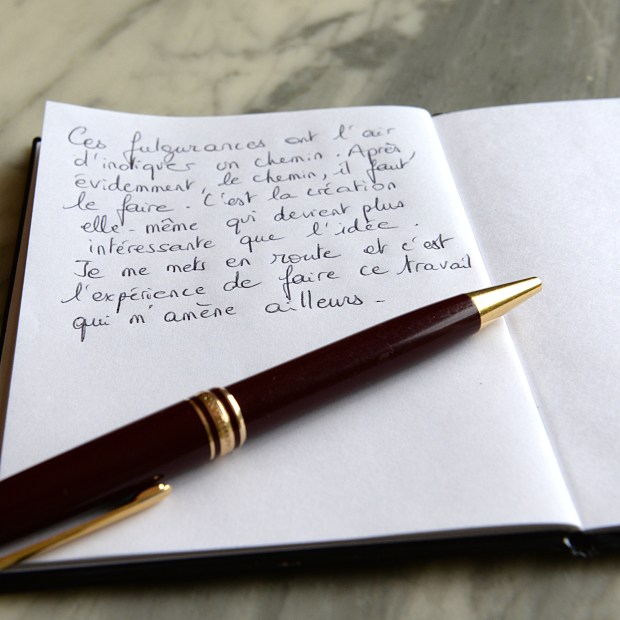 Ces fulgurances ont l'air
d'indiquer un chemin. Après
évidemment, le chemin, il faut
le faire. C'est la création
elle-même qui devient plus
intéressante que l'idée.
Je me mets en route et c'est
l'expérience de faire ce travail
qui m'amène ailleurs -